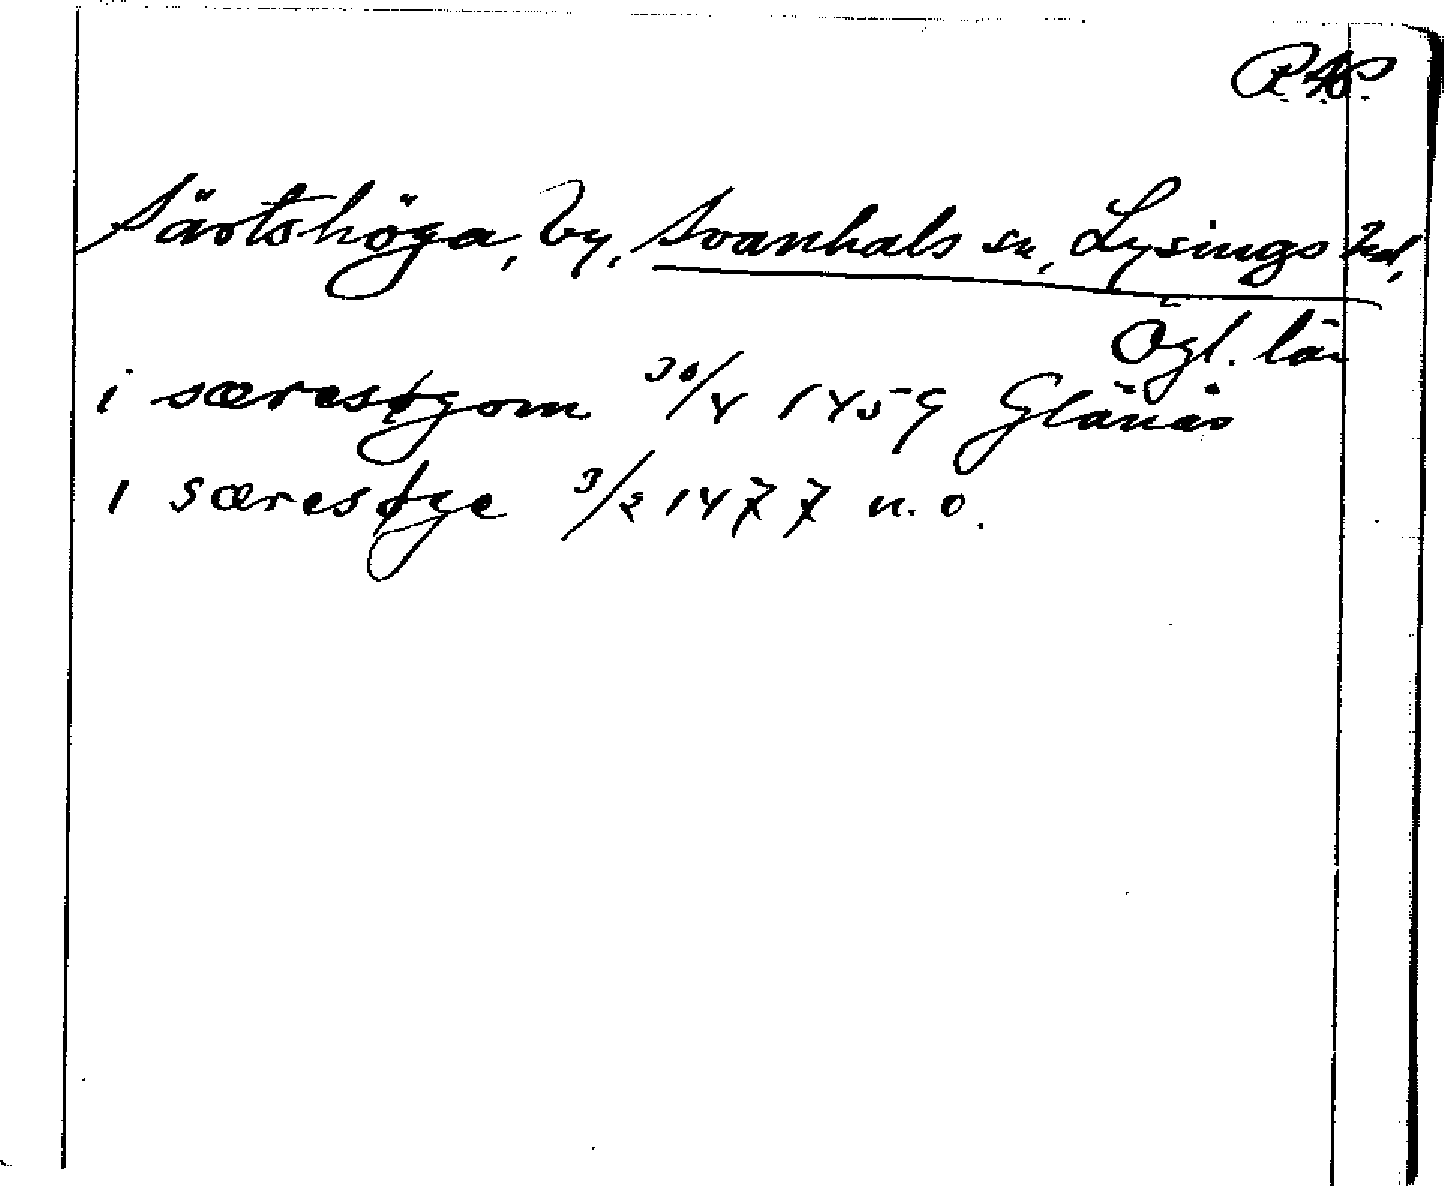 RAP.
Särtshöga, by, Svanhals sn, Lysings hd,
Ögl. län
i særesøgom 30/4 1459 Glänås
i særesøge 3/2 1477 n. o.